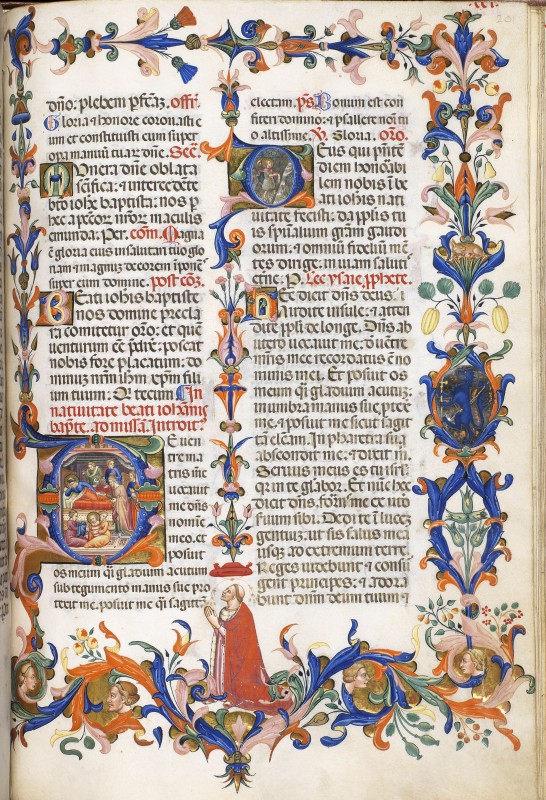 XXI.
201
dño: plebem pficaz. offr.
Gloria et honore coronasti e
um et constituisti eum super
opa manuū tuaꝝ dñe. Sec.
Munera dñe oblata
scifica: et intercedēte
bto iohe baptista: nos p
hec a pctoꝝ nr̃oꝝ maculis
emunda: Per. com. Magna
ē gloria eius in salutari tuo glo
riam et magnuz decorem īponēs
super eum domine. post coz.
Beati iohis baptiste
nos domine precla
ra comitetur orō: et quē
uenturum eē pdixit: poscat
nobis fore placatum: do
minuz nrm ihm xpm filiu
um tuum: Qi tecum In
natiuitate beati iohanis
bapte. ad missā. Introit.
De uen
tre ma
tris mee
uocauit
me dñs
nomīe
meo. et
posuit
os meum qi gladium acutum
sub tegumento manus sue pro
texit me. posuit me qi sagittā
electam. ps Bonum est con
fiteri domino: et psallere noīi tu
o altissime. V. Gloria. oro.
Deus qui pñtē
diem honorabi
lem nobis ī be
ati iohis nati
uitate fecisti: da pplis tu
is spūalium grām gaudi
orum: et omniū fideliū mē
tes dirige ī uiam salutis
eterne. P. Lec ysaie pphete.
Hec dicit dñs deus:
Audite insule: et atten
dite ppli de longe. Dñs ab
utero uocauit me: de uentre
matris mee recordatus ē no
minis mei. Et posuit os
meum qi gladium acutuz:
in umbra manus sue ptexit
me: et posuit me sicut sagit
tā electam. In pharetra sua
abscondit me: et dixit m.
Seruus meus es tu isrl
qr in te glabor. Et nūc hec
dicit dñs. formās me ex uto
seruum sibi. Dedi te ī lucez
gentiuz. ut sis salus mea
usqz ad extremum terre.
Reges uidebunt et consur
gent principes: et adora
bunt dnm deum tuum et